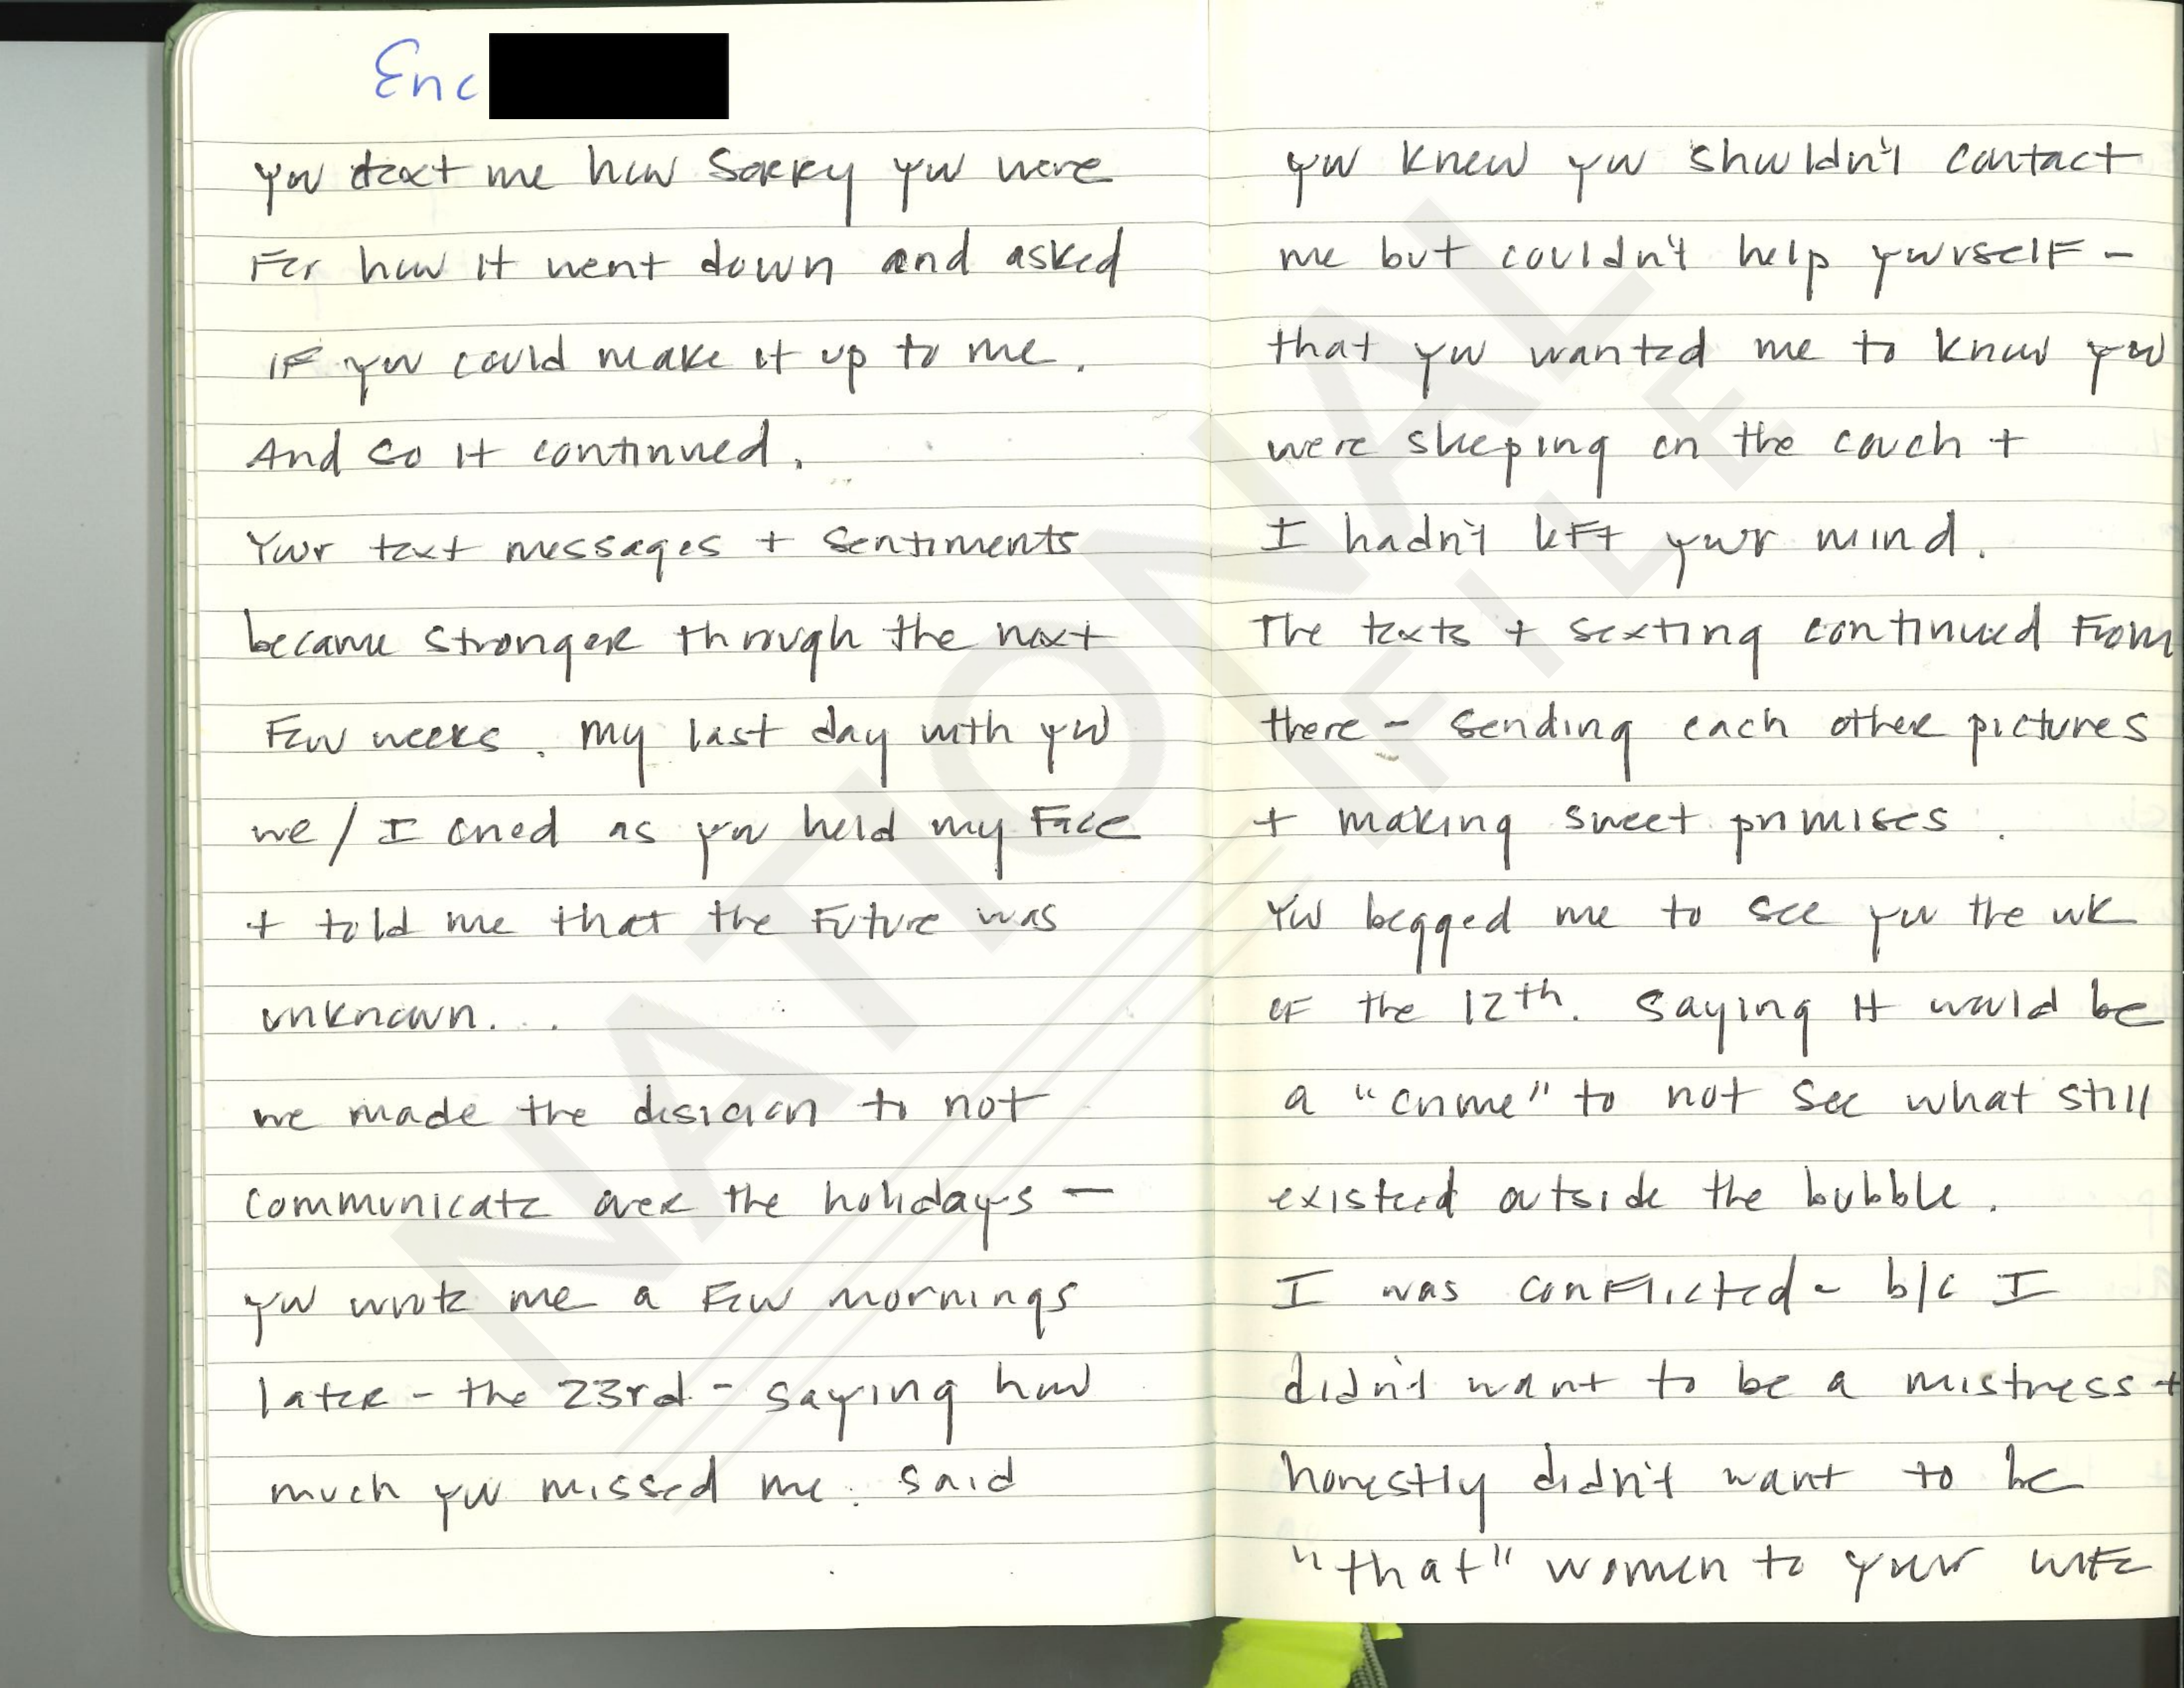 Eric
you text me how sorry you were
For how it went down and asked
if you could make it up to me.
And so it continued.
Your text messages + sentiments
became stronger through the next
Few weeks. My last day with you
we / I cried as you held my Face
+ told me that the Future was
unknown...
we made the disicion to not
communicate over the holidays -
you wrote me a Few mornings
later - the 23rd - saying how
much you missed me. Said
you knew you shouldn't contact
me but couldn't help yourself -
that you wanted me to know you
were sleeping on the couch +
I hadn't left your mind.
The texts + sexting continued From
there - sending each other pictures
+ making sweet promises.
You begged me to see you the wk
of the 12th. Saying it would be
a "crime" to not see what still
existed outside the bubble.
I was conflicted - b/c I
didn't want to be a mistress +
honestly didn't want to be
"that" women to your wife
NATIONAL
FILE